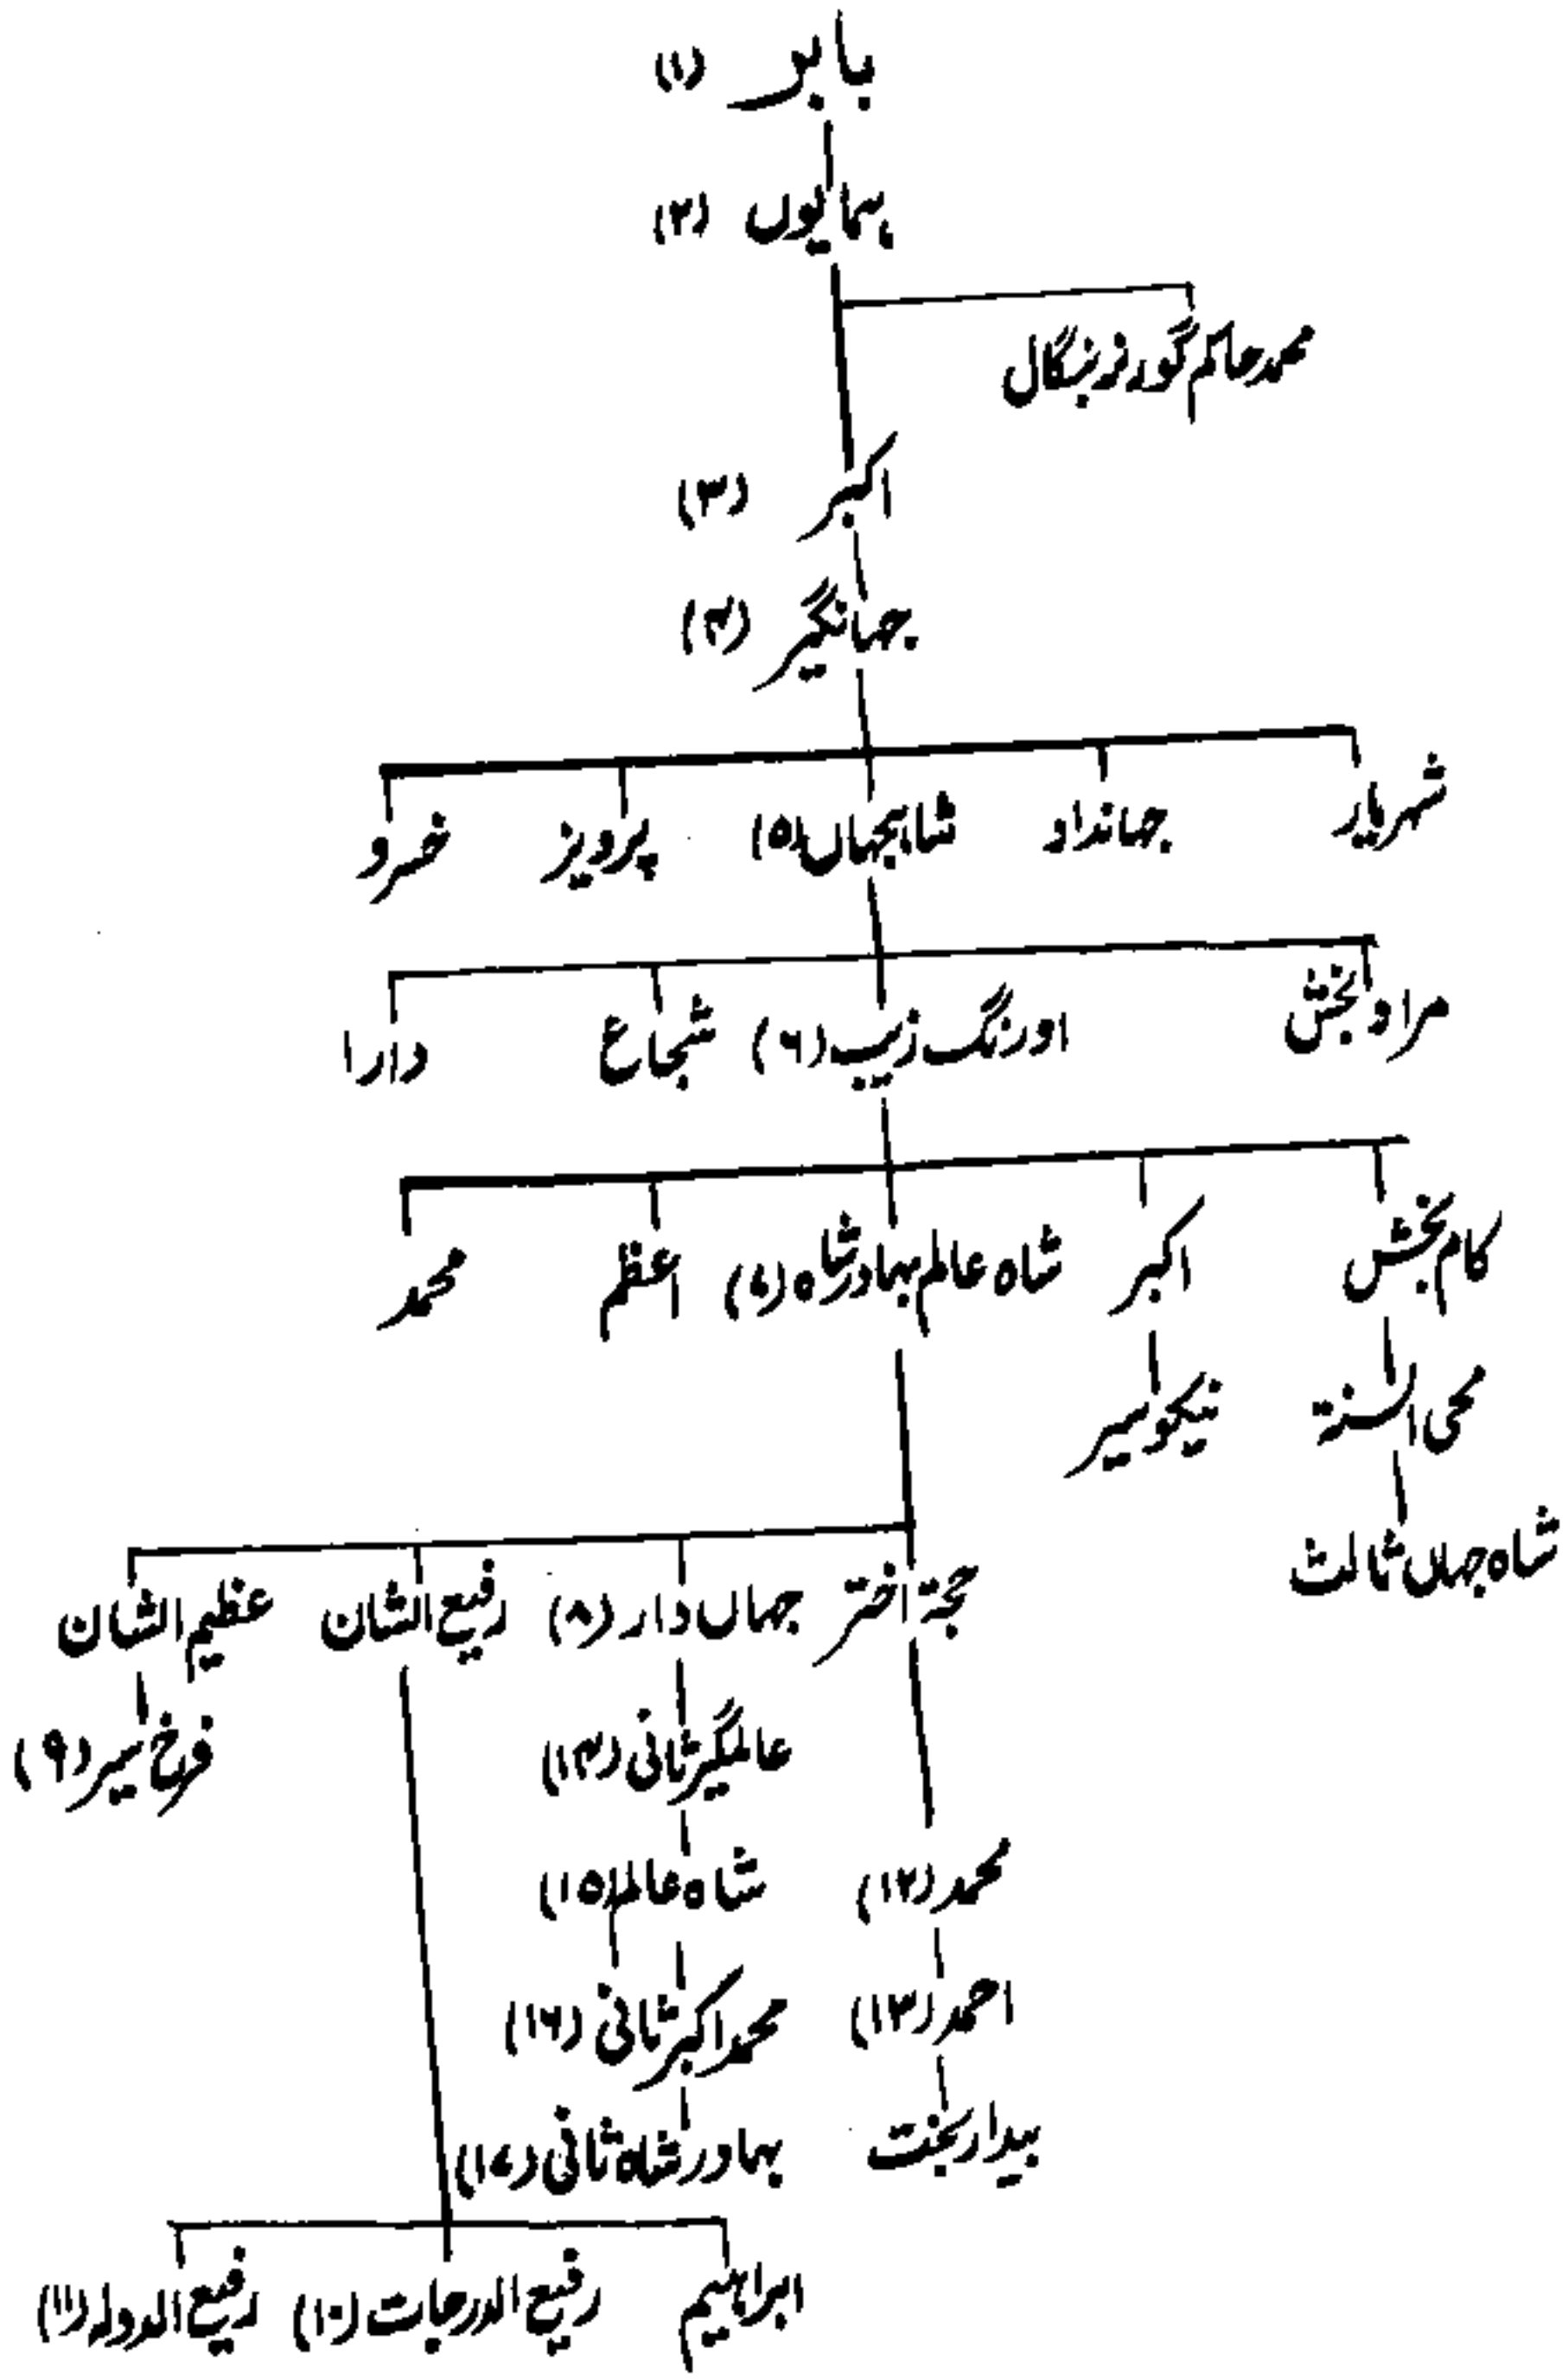 بابر (۱)
ہمایوں (۲)
محمد حاکم گورنر بنگال
اکبر (۳)
جہانگیر (۴)
شہریار جہانداد شاہجہاں (۵) پرویز خسرو
مراد بخش اورنگ زیب (۶) شجاع دارا
کام بخش اکبر شاہ عالم بہادر شاہ (۷) اعظم محمد
محی السنۃ نیکوسیر
شاہ جہاں ثالث
خجستہ اختر جہاں دار (۸) رفیع الشان عظیم الشان
عالمگیر ثانی (۱۴) فرخ سیر (۹)
محمد (۱۲) شاہ عالم (۱۵)
احمد (۱۳) محمد اکبر ثانی (۱۶)
بیدار بخت بہادر شاہ ثانی (۱۷)
ابراہیم رفیع الدرجات (۱۰) رفیع الدولہ (۱۱)